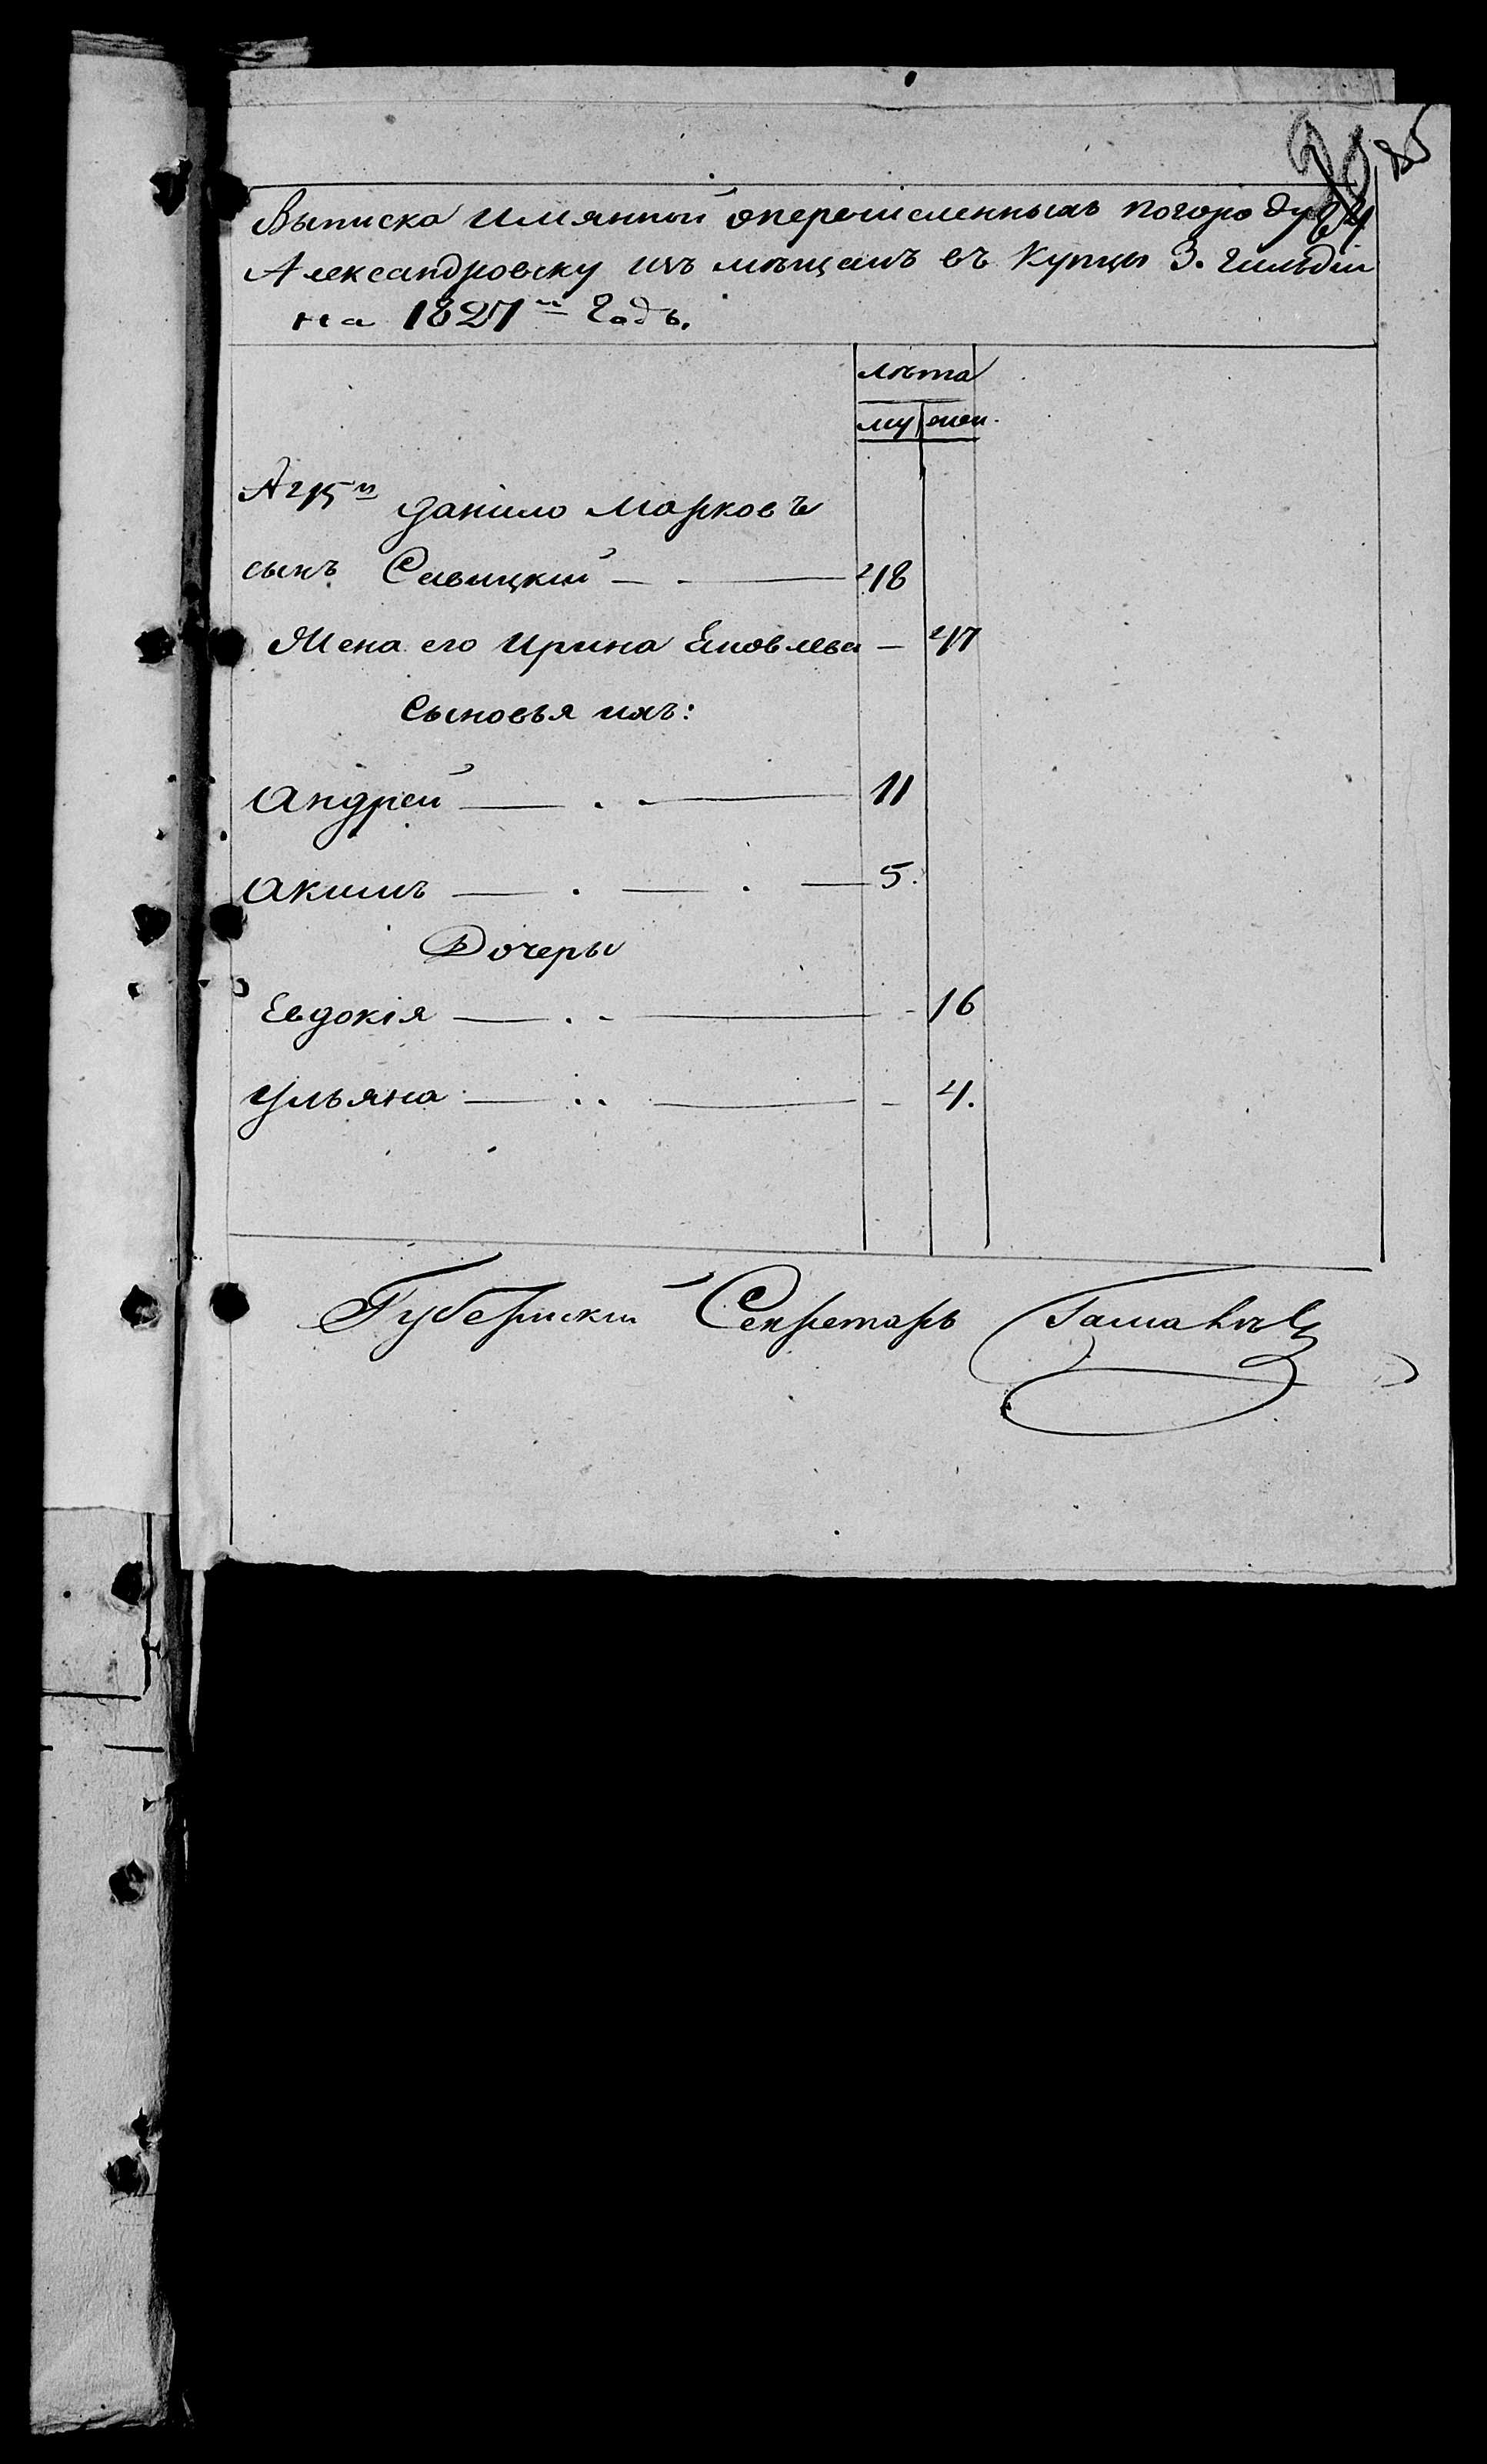 85
64
Выписка имянной оперечисленныхъ погороду
Александровску изъ мѣщанъ въ купцы 3. гильдіи
на 1827й Годъ.
лѣта
му жен.
Данило Марковъ
сынъ Савицкій — 48
Жена его Ирина Яковлева — 47
Сыновья ихъ:
Андрей — 11
Акимъ — 5.
Дочеры
Евдокія — 16
Ульяна — 4.
Губернскій Секретарь